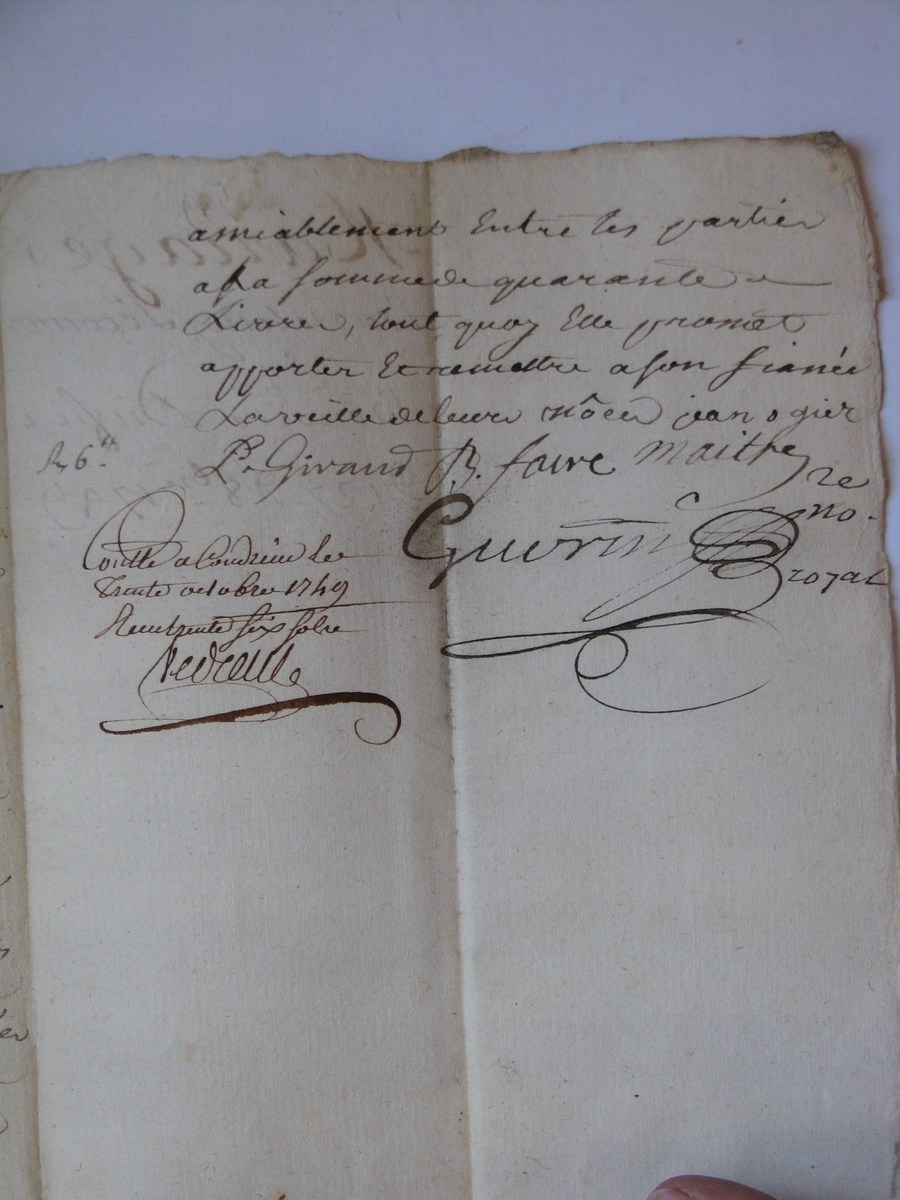 amiablement Entre les parties
a la somme de quarante
Livres, tout quoy Elle promet
apporter Et remettre a son fiancé
La veille de leurs nôces jean ogier
R 6.tt P. Giraud B. favre maitre
Guerin re no. royal
Con.lle a Condrieu le
Trente octobre 1749
Recu trente six sols